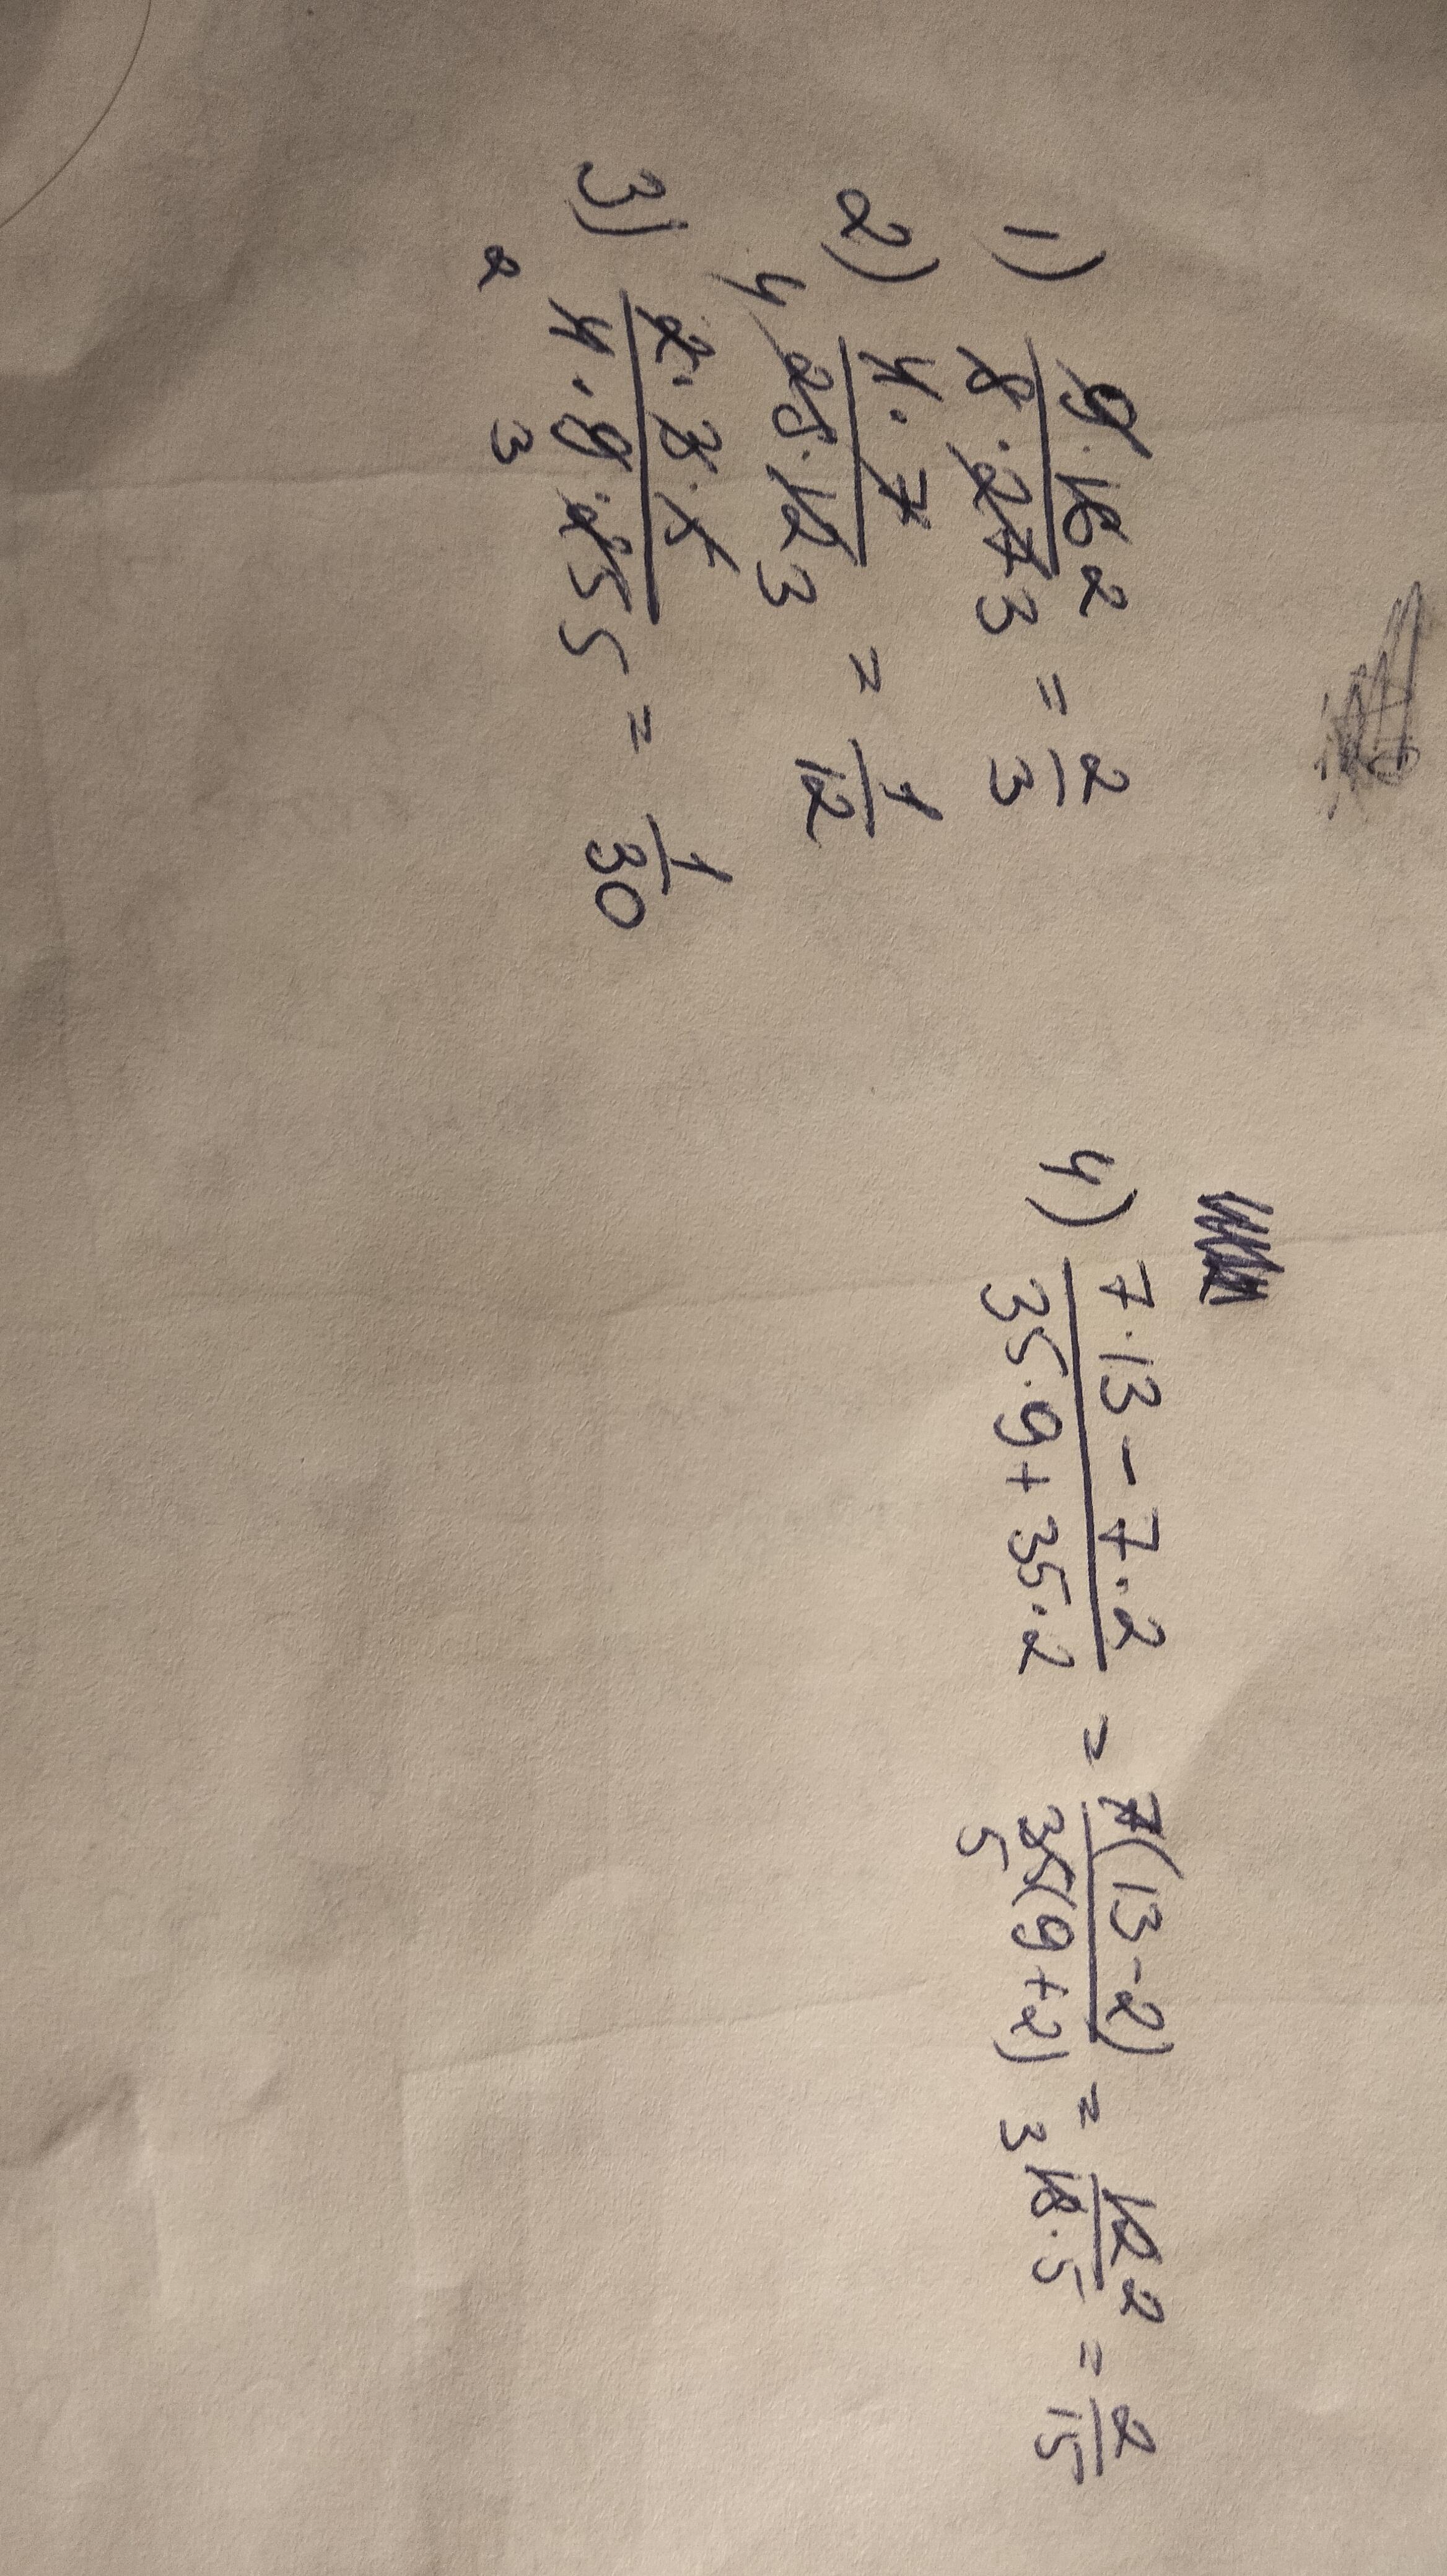 1) 9·16 2 / 8·27 3 = 2/3
2) 4·7 / 4 28·12 3 = 1/12
3) 2·3·5 / 2 4·9 3·25 5 = 1/30
4) 7·13 - 7·2 / 35·9 + 35·2 = 7(13-2) / 35 5 (9+2) = 12 2 / 3 18·5 = 2/15